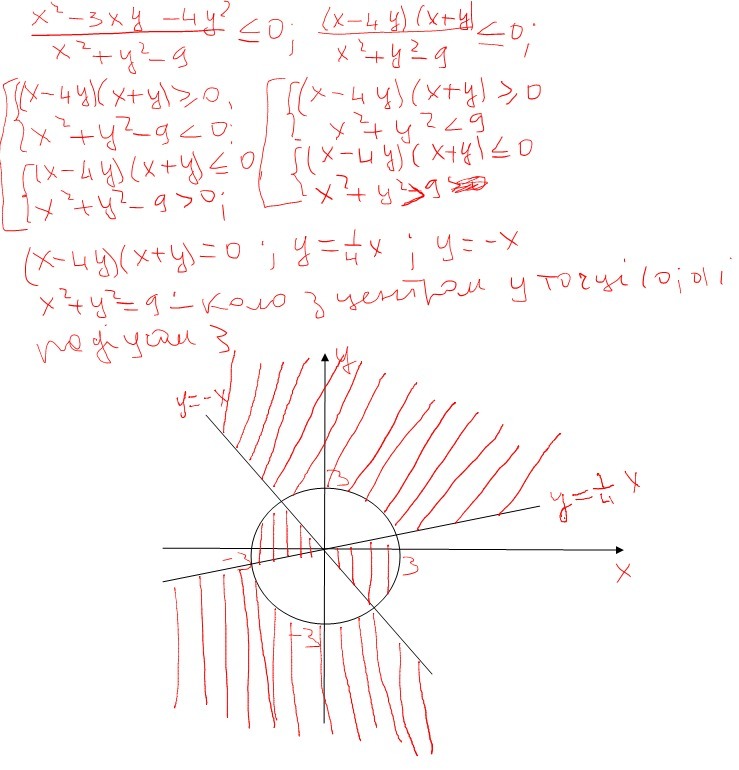 x² - 3xy - 4y² / x² + y² - 9 ≤ 0; (x-4y)(x+y) / x² + y² - 9 ≤ 0;
(x-4y)(x+y) ≥ 0, (x-4y)(x+y) ≥ 0
x² + y² - 9 < 0; x² + y² < 9
(x-4y)(x+y) ≤ 0 (x-4y)(x+y) ≤ 0
x² + y² - 9 > 0; x² + y² > 9
(x-4y)(x+y) = 0; y = 1/4 x; y = -x
x² + y² = 9 - коло з центром у точці (0;0) і
радіусом 3
y
y = -x
3
y = 1/4 x
-3
3
x
-3